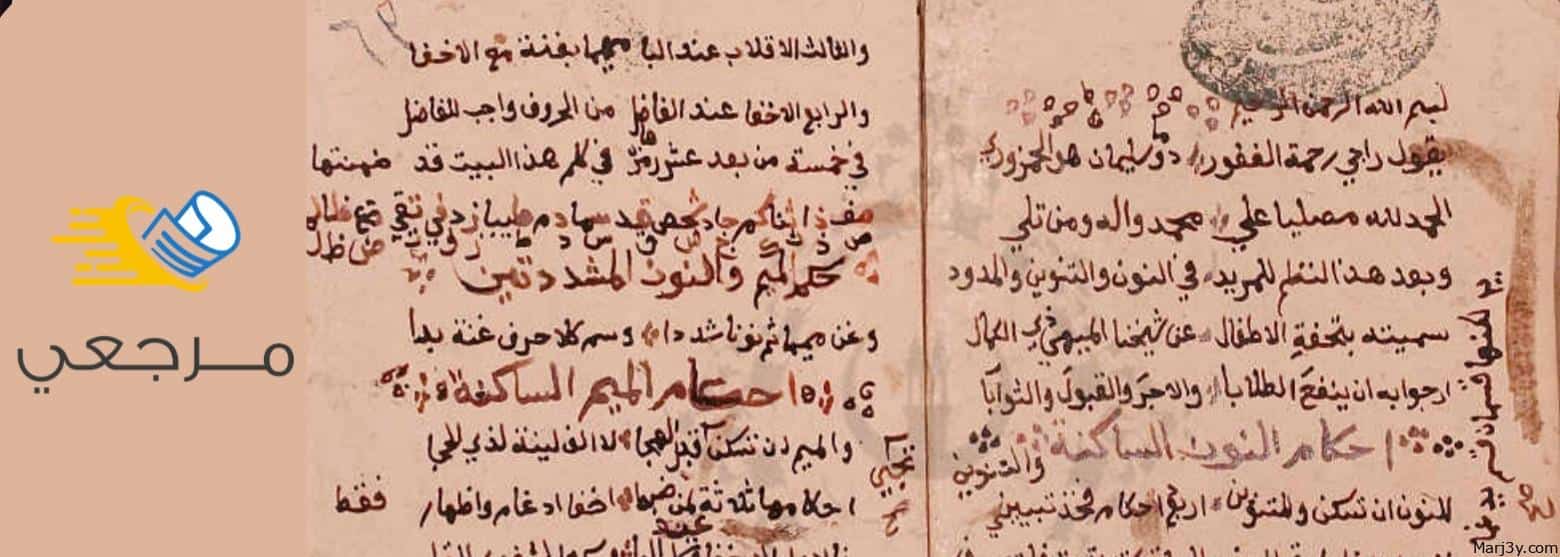 بسم الله الرحمن الرحيم
يقول راجي رحمة الغفور دوما سليمان هو الجمزوري
الحمد لله مصليا علي محمد واله ومن تلي
وبعد هذا النظم للمريد في النون والتنوين والمدود
سميته بتحفة الاطفال عن شيخنا الميهي ذي الكمال
ارجوا به ان ينفع الطلابا والاجر والقبول والثوابا
احكام النون الساكنة والتنوين
للنون ان تسكن وللتنوين اربع احكام فخذ تبييني
والثالث الاقلاب عند البا ميما بغنة مع الاخفا
والرابع الاخفا عند الفاضل من الحروف واجب للفاضل
في خمسة من بعد عشر رمزها في كلم هذا البيت قد ضمنتها
صف ذا ثنا كم جاد شخص قد سما دم طيبا زد في تقي ضع ظالما
ص ذ ث ك ج ش ق س د ط ز ف ت ض ظ
حكم الميم والنون المشددتين
وغن ميما ثم نونا شددا وسم كلا حرف غنة بدا
احكام الميم الساكنة
والميم ان تسكن تجي قبل الهجا لا الف لينة لذي الحجا
احكامها ثلاثة لمن ضبط اخفا ادغام واظهار فقط
عند
مرجعي
Marj3y.com